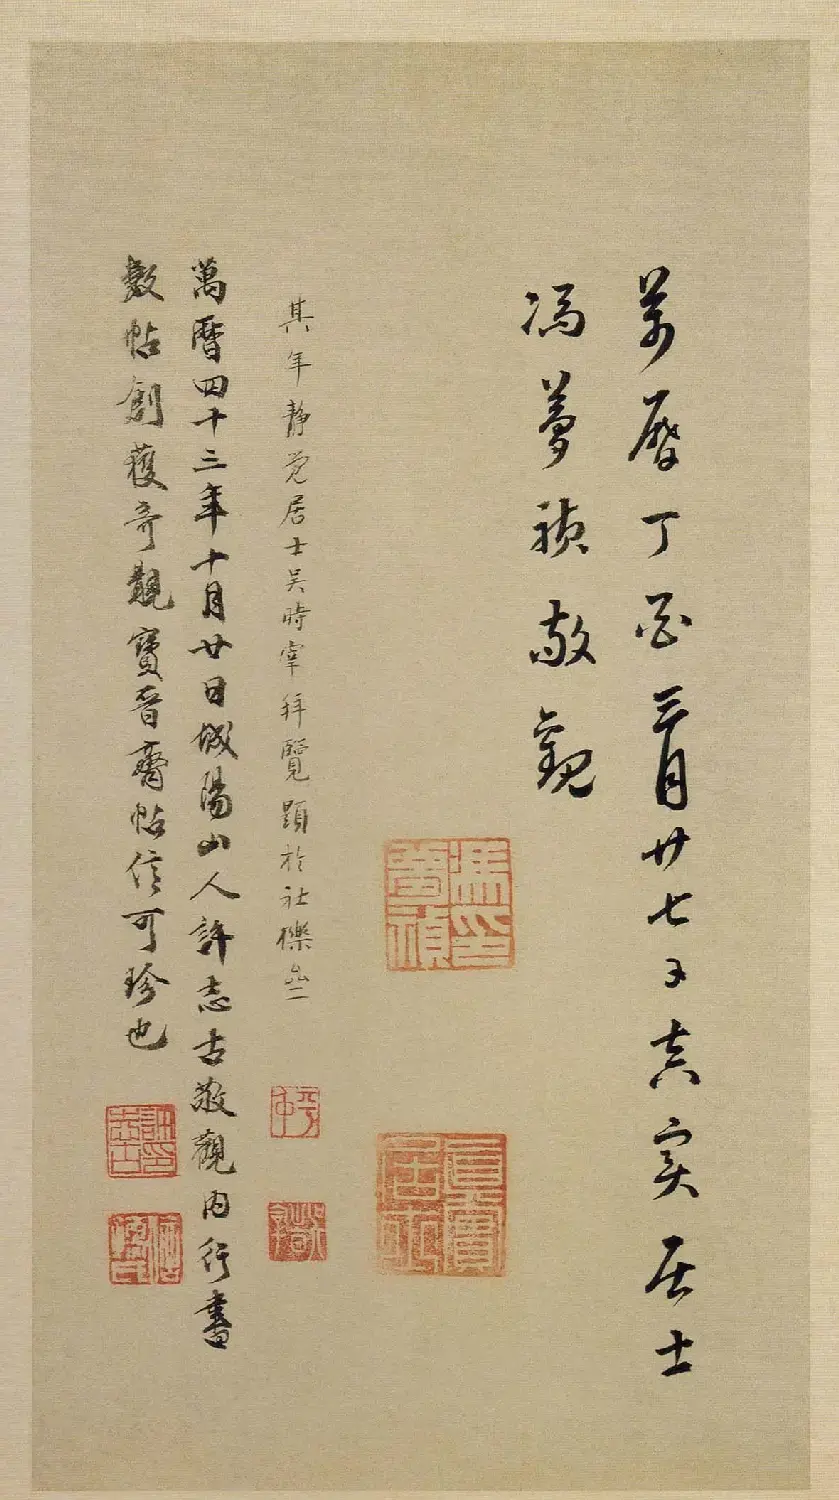 萬曆丁酉三月廿七日真實居士
馮夢禎敬觀
馮夢禎印
真實居士
其年靜覺居士吳時宰拜覽題於社櫟
萬曆四十三年十月廿日城陽山人許志古敬觀内行書
數帖創獲奇觀寶晉齋帖信可珍也
許志古印